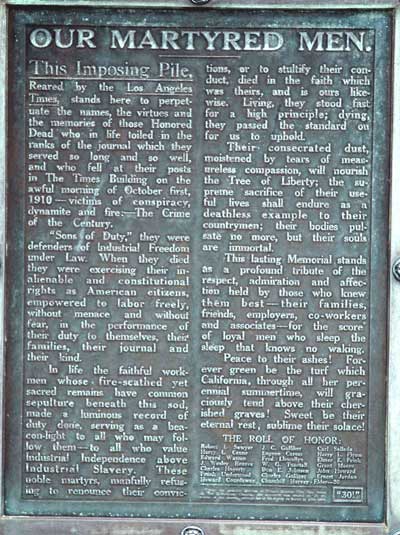 OUR MARTYRED MEN.
This Imposing Pile,
Reared by the Los Angeles
Times, stands here to perpet-
uate the names, the virtues and
the memories of those Honored
Dead who in life toiled in the
ranks of the journal which they
served so long and so well,
and who fell at their posts
in The Times Building on the
awful morning of October first,
1910—victims of conspiracy,
dynamite and fire:—The Crime
of the Century.
"Sons of Duty," they were
defenders of Industrial Freedom
under Law. When they died
they were exercising their in-
alienable and constitutional
rights as American citizens,
empowered to labor freely,
without menace and without
fear, in the performance of
their duty to themselves, their
families, their journal and
their kind.
In life the faithful work-
men whose fire-scathed yet
sacred remains have common
sepulture beneath this sod,
made a luminous record of
duty done, serving as a bea-
con-light to all who may fol-
low them—to all who value
Industrial Independence above
Industrial Slavery. These
noble martyrs, manfully refus-
ing to renounce their convic-
tions, or to stultify their con-
duct, died in the faith which
was theirs, and is ours like-
wise. Living, they stood fast
for a high principle; dying,
they passed the standard on
for us to uphold.
Their consecrated dust,
moistened by tears of meas-
ureless compassion, will nourish
the Tree of Liberty; the su-
preme sacrifice of their use-
ful lives shall endure as a
deathless example to their
countrymen; their bodies pul-
sate no more, but their souls
are immortal.
This lasting Memorial stands
as a profound tribute of the
respect, admiration and affec-
tion held by those who knew
them best—their families,
friends, employers, co-workers
and associates—for the score
of loyal men who sleep the
sleep that knows no waking.
Peace to their ashes! For-
ever green be the turf which
California, through all her per-
ennial summertime, will gra-
ciously tend above their cher-
ished graves! Sweet be their
eternal rest, sublime their solace!
THE ROLL OF HONOR:
Robert L. Sawyer
Harry L. Crane
Edward Wasson
J. Wesley Reaves
Charles Haggerty
Frank Underwood
Howard Cordaway
J. C. Galliher
Eugene Carress
Fred Llewellyn
W. G. Tunstall
Don E. Johnson
Charles Gulliver
Churchill Harvey-Elder
Carl Sallada
Harry L. Flynn
Elmer L. Frink
Grant Moore
John Howard
Ernest Jordan
"30!"